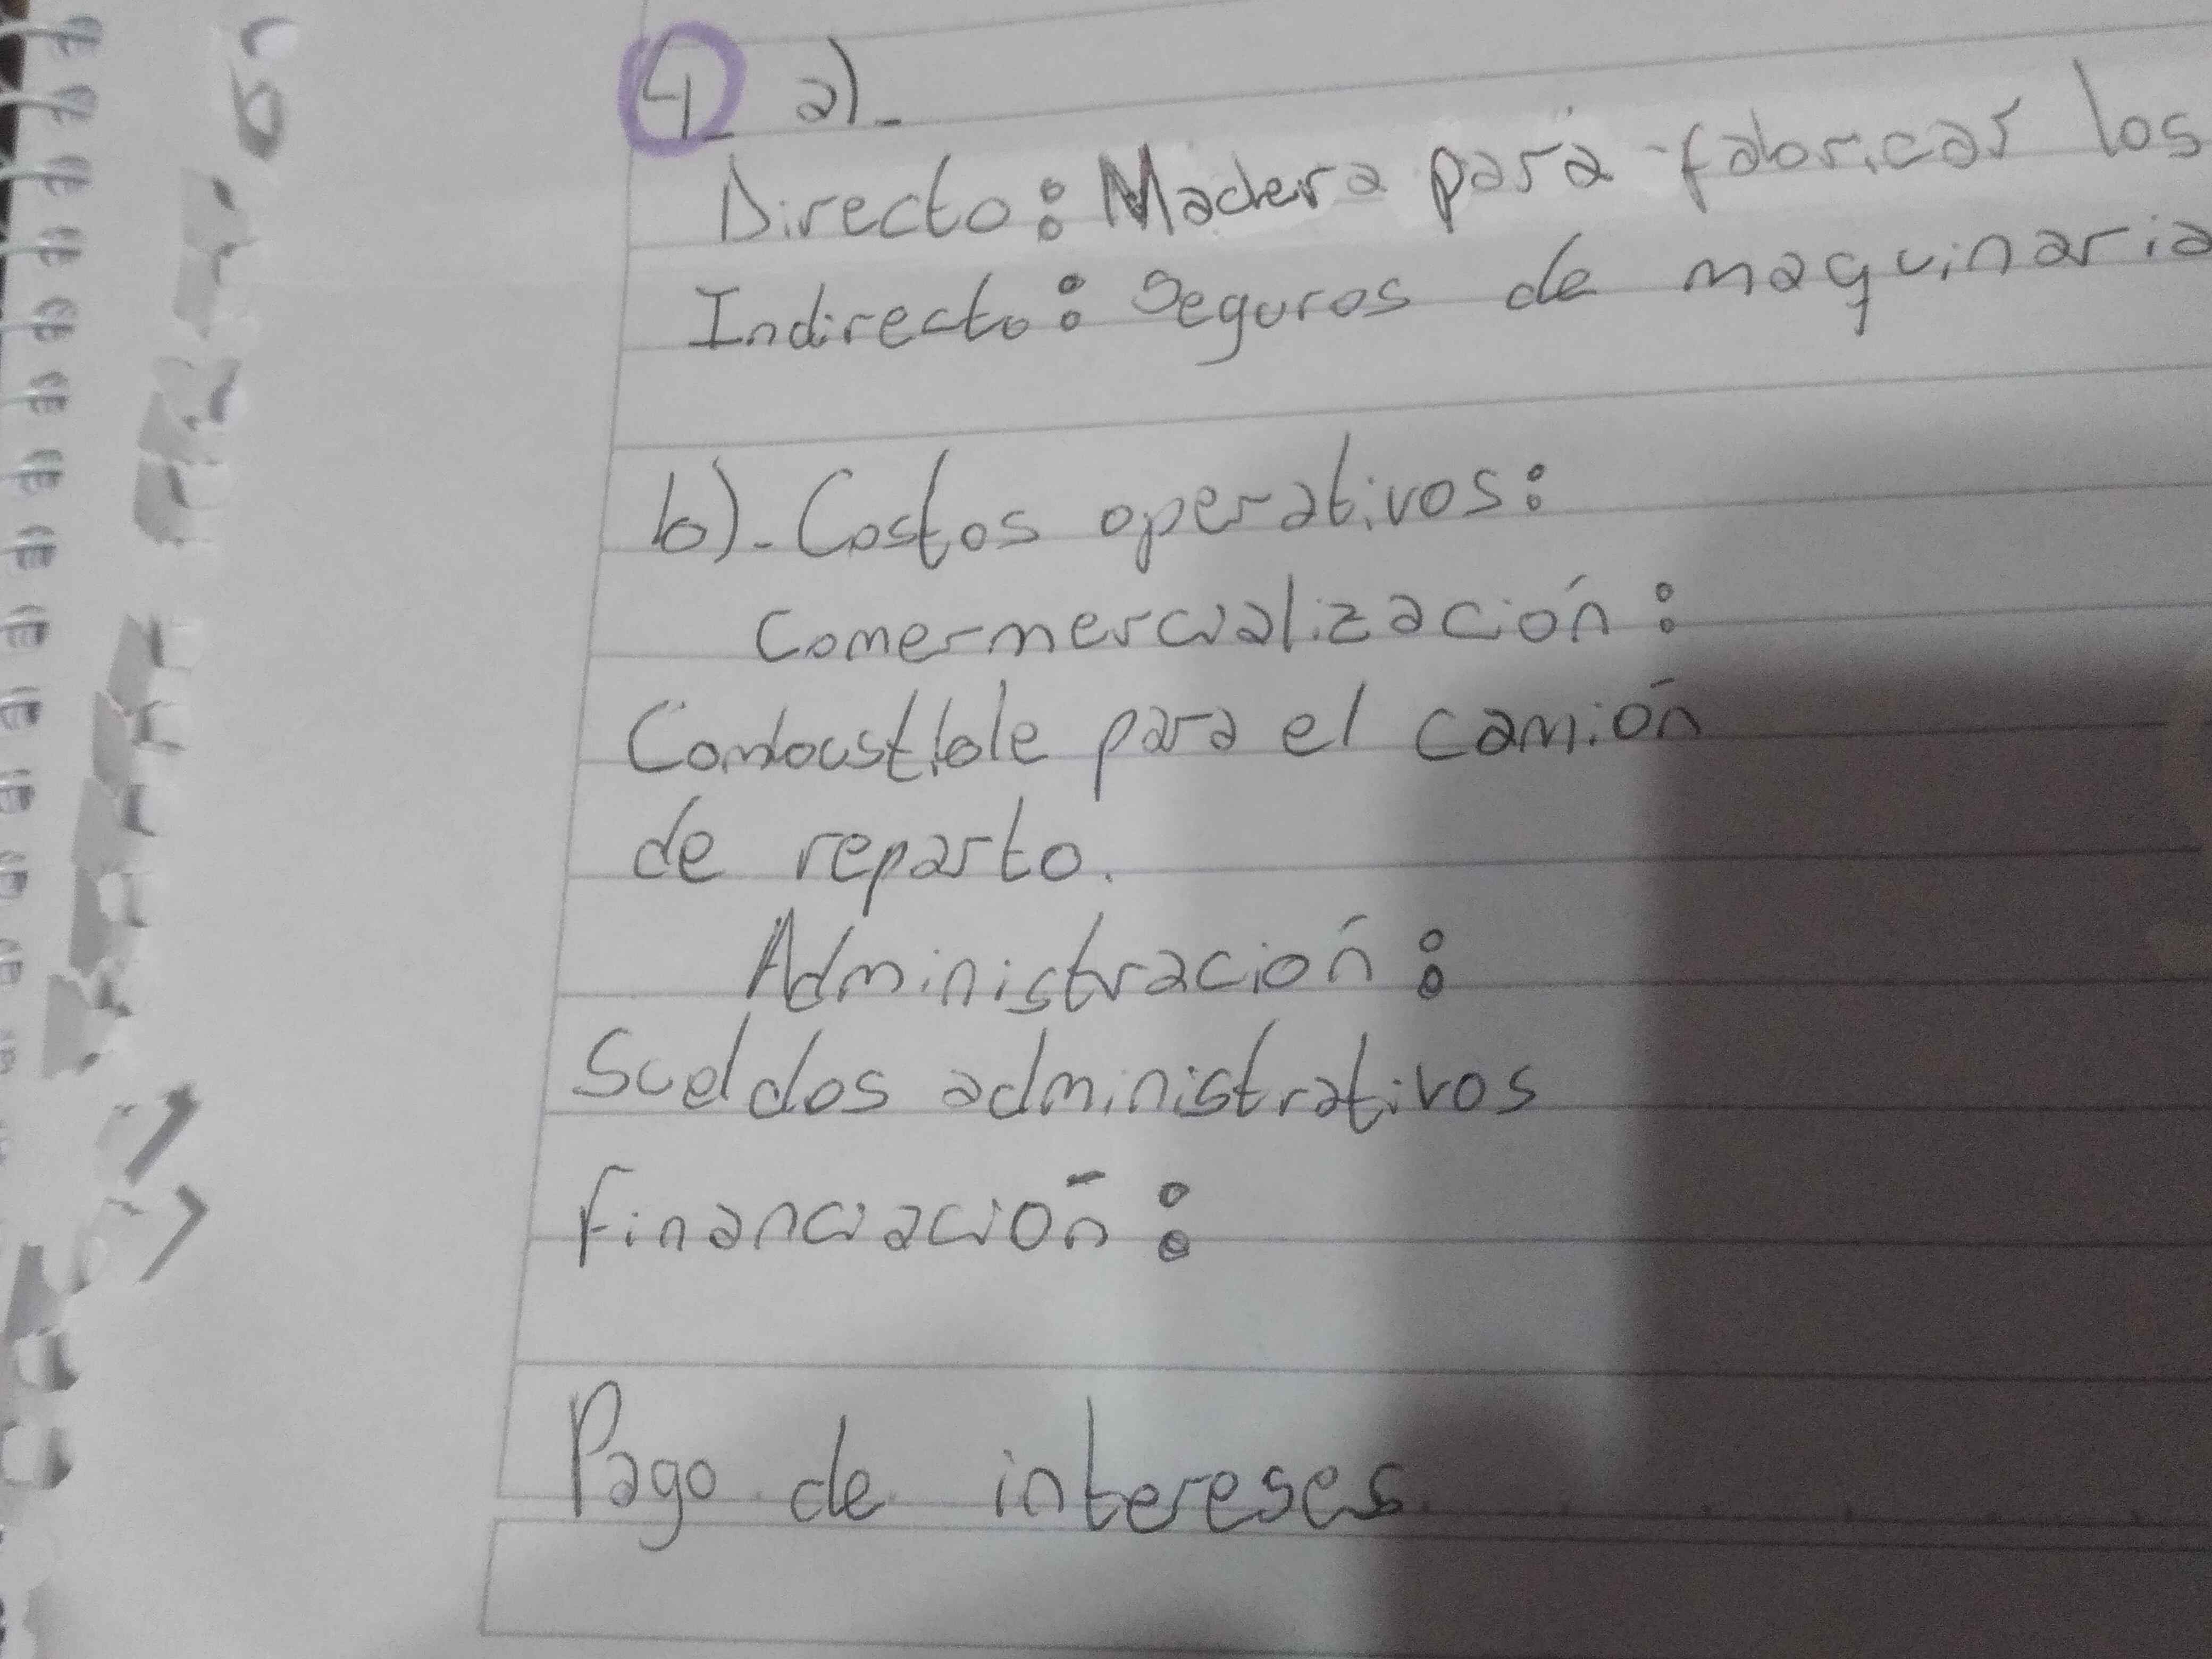 4_ a)_
Directo: Madera para fabricar los
Indirecto: Seguros de maquinaria
b)_ Costos operativos:
Comermercialización:
Combustible para el camión
de reparto.
Administración:
Sueldos administrativos
Financiación:
Pago de intereses